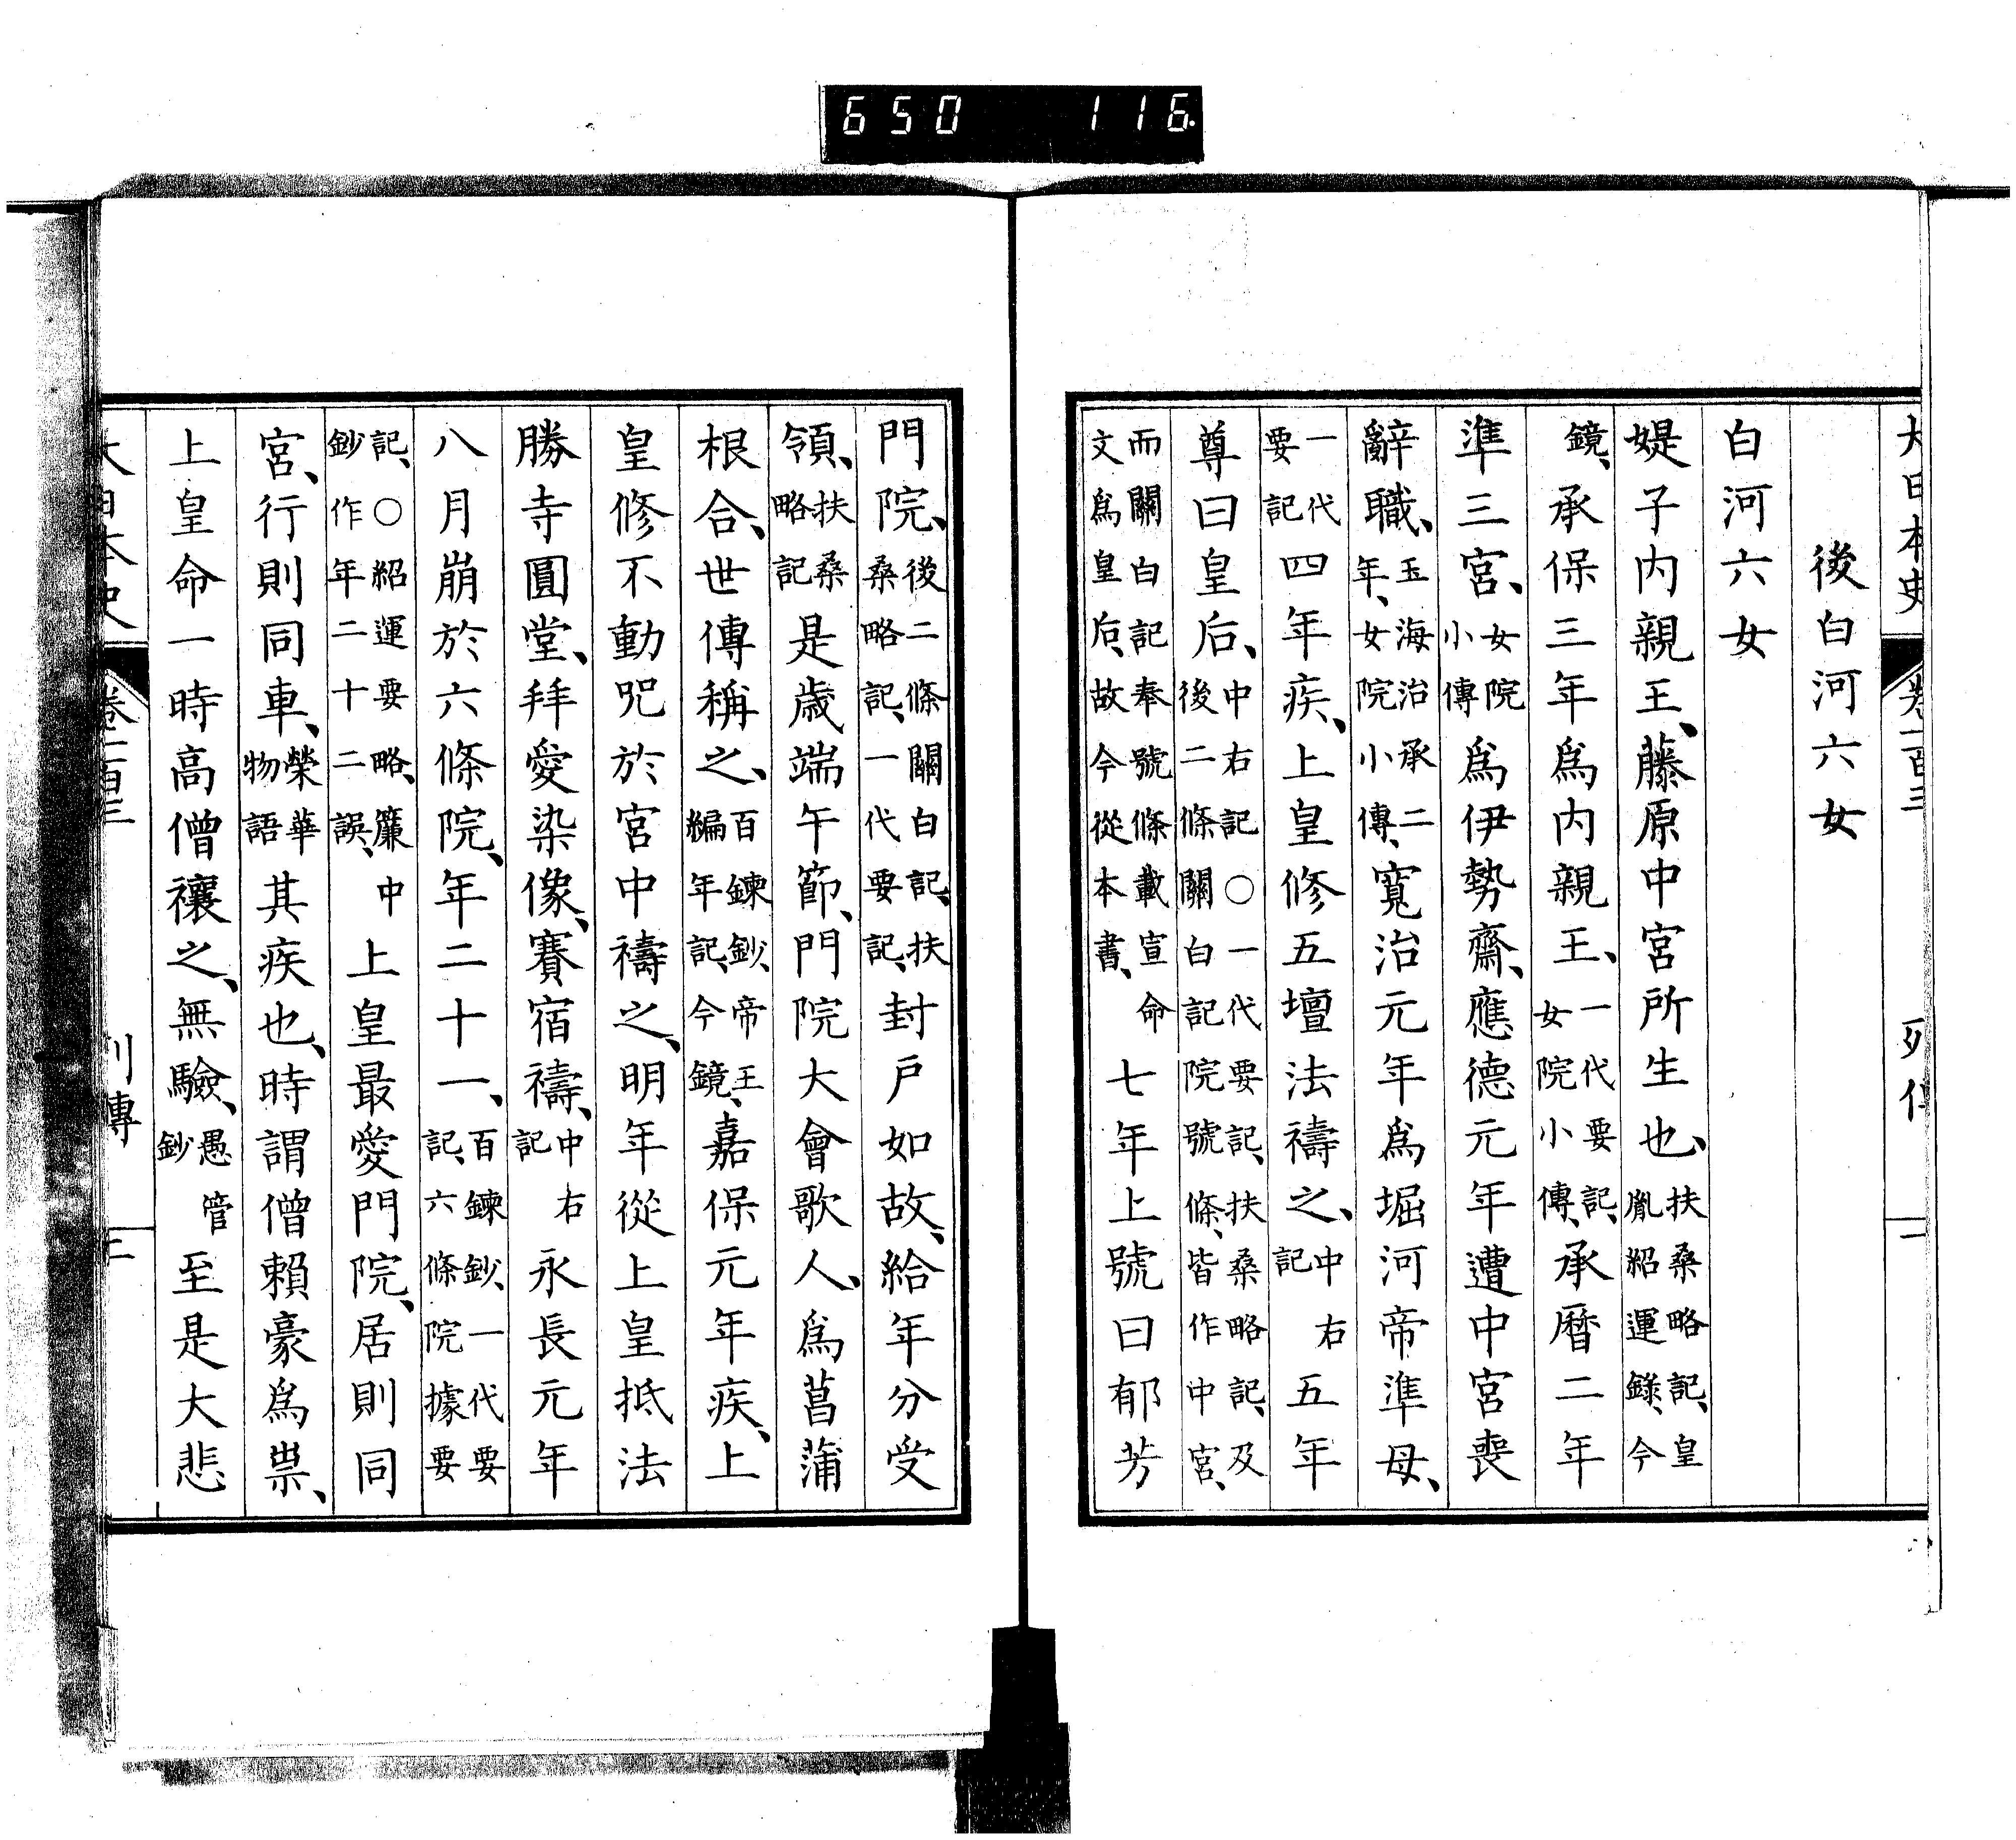 650 116.
大日本史 卷一百三 列傳 二
後白河六女
白河六女
媞子内親王、藤原中宮所生也、扶桑略記、皇胤紹運錄、今
鏡、承保三年爲内親王、一代要記、女院小傳、承暦二年
準三宮、女院小傳爲伊勢齋、應德元年遭中宮喪
辭職、玉海治承二年、女院小傳、寬治元年爲堀河帝準母、
一代要記四年疾、上皇修五壇法禱之、中右記五年
尊曰皇后、中右記○一代要記、扶桑略記、及後二條關白記院號條、皆作中宮、
而關白記奉號條載宣命文爲皇后、故今從本書、七年上號曰郁芳
門院、後二條關白記、扶桑略記、一代要記、封戸如故、給年分受
領、扶桑略記是歳端午節、門院大會歌人、爲菖蒲
根合、世傳稱之、百鍊鈔、帝王編年記、今鏡、嘉保元年疾、上
皇修不動咒於宮中禱之、明年從上皇抵法
勝寺圓堂、拜愛染像、賽宿禱、中右記永長元年
八月崩於六條院、年二十一、百鍊鈔、一代要記、六條院據要
記、○紹運要略、簾中鈔作年二十二誤、上皇最愛門院、居則同
宮、行則同車、榮華物語其疾也、時謂僧賴豪爲祟、
上皇命一時高僧禳之、無驗、愚管鈔至是大悲
大日本史 卷一百三 列傳 三